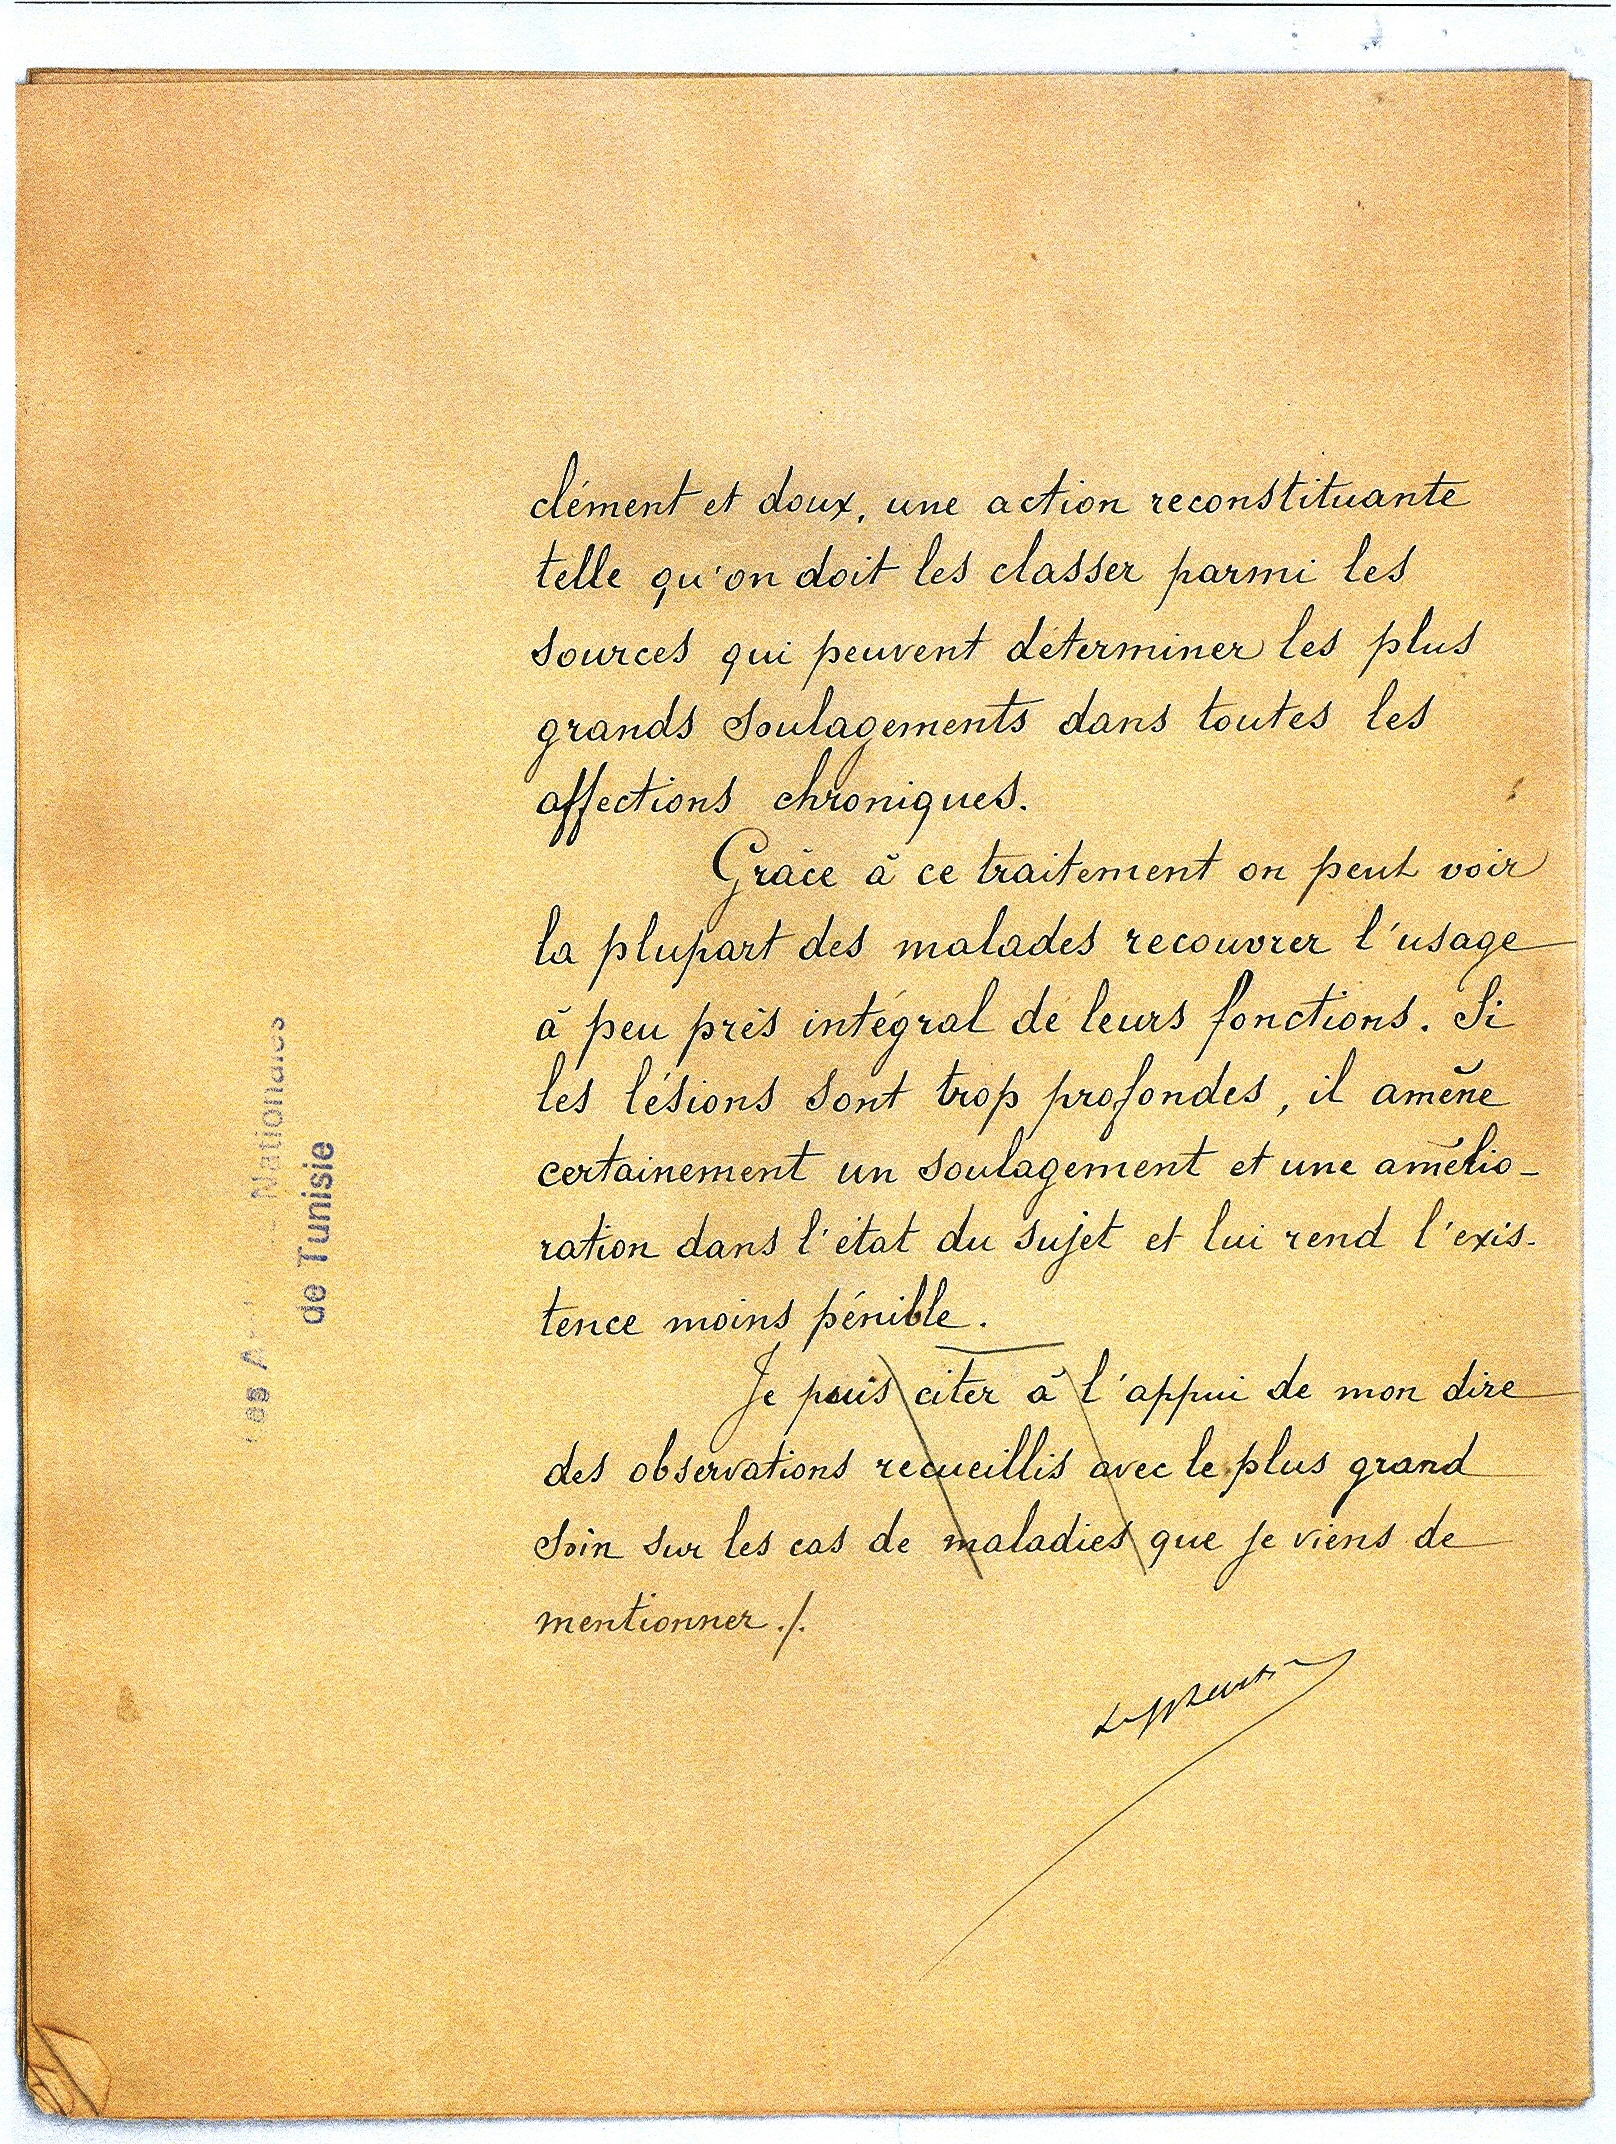 clément et doux, une action reconstituante
telle qu'on doit les classer parmi les
sources qui peuvent déterminer les plus
grands soulagements dans toutes les
affections chroniques.
Grâce à ce traitement on peut voir
la plupart des malades recouvrer l'usage
à peu près intégral de leurs fonctions. Si
les lésions sont trop profondes, il amène
certainement un soulagement et une amélio-
ration dans l'état du sujet et lui rend l'exis-
tence moins pénible.
Je puis citer à l'appui de mon dire
des observations recueillis avec le plus grand
soin sur les cas de maladies que je viens de
mentionner ./.
Nationales
de Tunisie